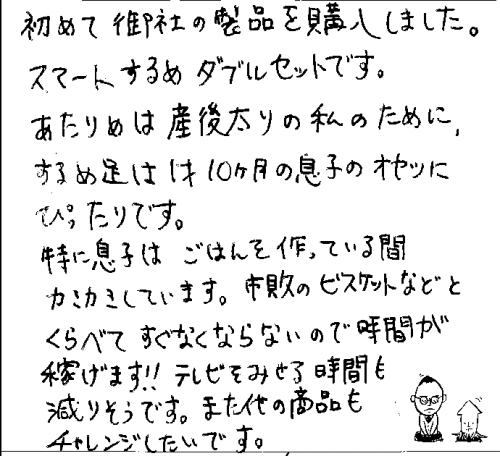 初めて御社の製品を購入しました。
スマートするめダブルセットです。
あたりめは産後太りの私のために,
するめ足は1才10ヶ月の息子のオヤツに
ぴったりです。
特に息子はごはんを作っている間
カミカミしています。市販のビスケットなどと
くらべてすぐなくならないので時間が
稼げます!! テレビをみせる時間も
減りそうです。また他の商品も
チャレンジしたいです。